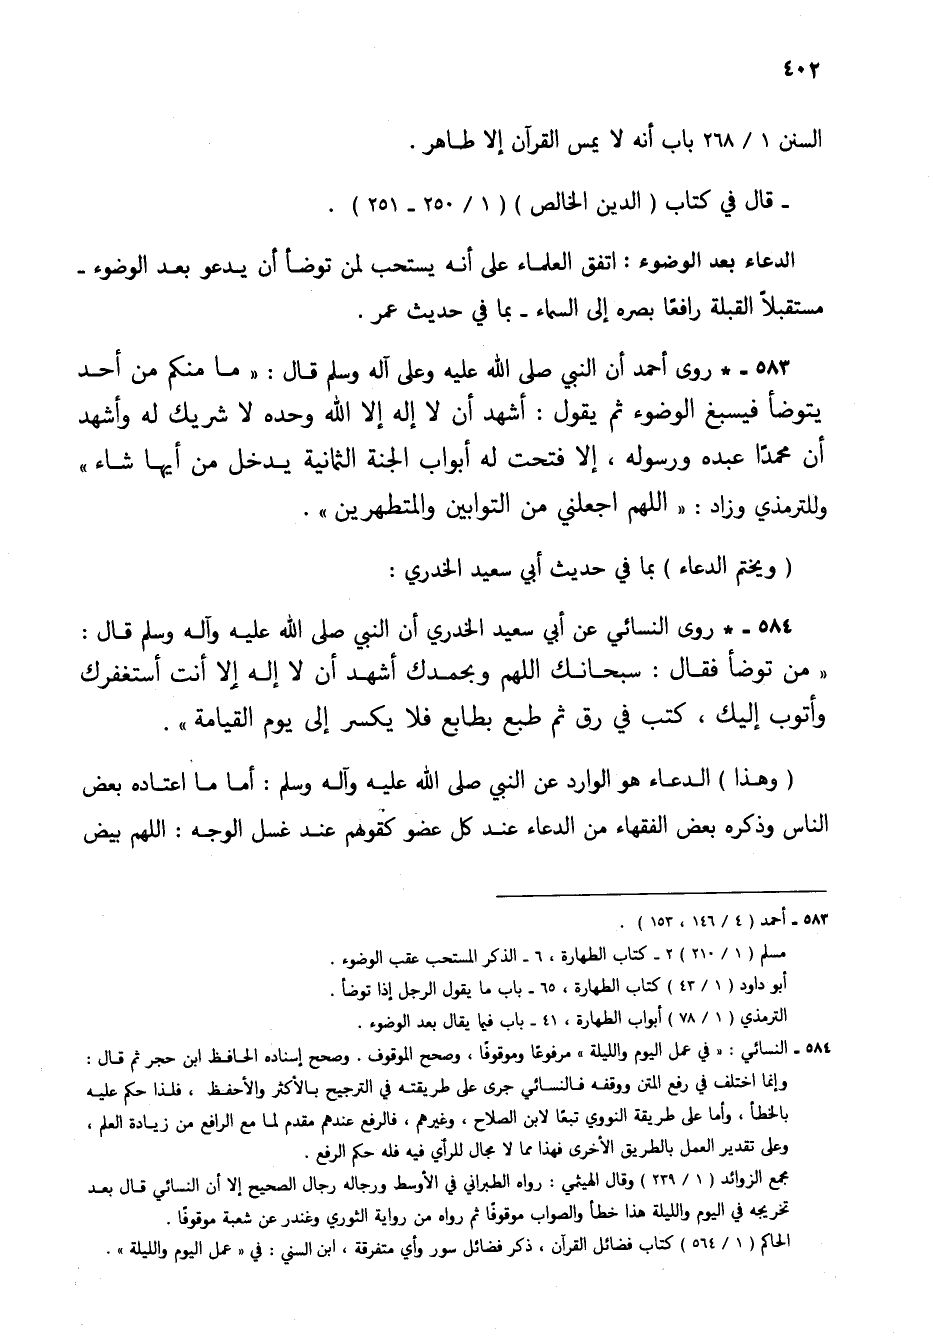 ٤٠٢
السنن ١ / ٢٦٨ باب أنه لا يمس القرآن إلا طاهر .
ـ قال في كتاب ( الدين الخالص ) ( ١ / ٢٥٠ ـ ٢٥١ ) .
الدعاء بعد الوضوء : اتفق العلماء على أنه يستحب لمن توضأ أن يدعو بعد الوضوء ـ
مستقبلاً القبلة رافعًا بصره إلى السماء ـ بما في حديث عمر .
٥٨٣ ـ * روى أحمد أن النبي صلى الله عليه وعلى آله وسلم قال : « ما منكم من أحد
يتوضأ فيسبغ الوضوء ثم يقول : أشهد أن لا إله إلا الله وحده لا شريك له وأشهد
أن محمدًا عبده ورسوله ، إلا فتحت له أبواب الجنة الثمانية يدخل من أيها شاء »
وللترمذي وزاد : « اللهم اجعلني من التوابين والمتطهرين » .
( ويختم الدعاء ) بما في حديث أبي سعيد الخدري :
٥٨٤ ـ * روى النسائي عن أبي سعيد الخدري أن النبي صلى الله عليه وآله وسلم قال :
« من توضأ فقال : سبحانك اللهم وبحمدك أشهد أن لا إله إلا أنت أستغفرك
وأتوب إليك ، كتب في رق ثم طبع بطابع فلا يكسر إلى يوم القيامة » .
( وهذا ) الدعاء هو الوارد عن النبي صلى الله عليه وآله وسلم : أما ما اعتاده بعض
الناس وذكره بعض الفقهاء من الدعاء عند كل عضو كقولهم عند غسل الوجه : اللهم بيض
٥٨٣ ـ أحمد ( ٤ / ١٤٦ ، ١٥٣ ) .
مسلم ( ١ / ٢١٠ ) ٢ ـ كتاب الطهارة ، ٦ ـ الذكر المستحب عقب الوضوء .
أبو داود ( ١ / ٤٣ ) كتاب الطهارة ، ٦٥ ـ باب ما يقول الرجل إذا توضأ .
الترمذي ( ١ / ٧٨ ) أبواب الطهارة ، ٤١ ـ باب فيما يقال بعد الوضوء .
٥٨٤ ـ النسائي : « في عمل اليوم والليلة » مرفوعًا وموقوفًا ، وصحح الموقوف . وصحح إسناده الحافظ ابن حجر ثم قال :
وإنما اختلف في رفع المتن ووقفه فالنسائي جرى على طريقته في الترجيح بالأكثر والأحفظ ، فلذا حكم عليه
بالخطأ ، وأما على طريقة النووي تبعًا لابن الصلاح ، وغيرهم ، فالرفع عندهم مقدم لما مع الرافع من زيادة العلم ،
وعلى تقدير العمل بالطريق الأخرى فهذا مما لا مجال للرأي فيه فله حكم الرفع .
مجمع الزوائد ( ١ / ٢٣٩ ) وقال الهيثمي : رواه الطبراني في الأوسط ورجاله رجال الصحيح إلا أن النسائي قال بعد
تخريجه في اليوم والليلة هذا خطأ والصواب موقوفًا ثم رواه من رواية الثوري وغندر عن شعبة موقوفًا .
الحاكم ( ١ / ٥٦٤ ) كتاب فضائل القرآن ، ذكر فضائل سور وأي متفرقة ، ابن السني : في « عمل اليوم والليلة » .